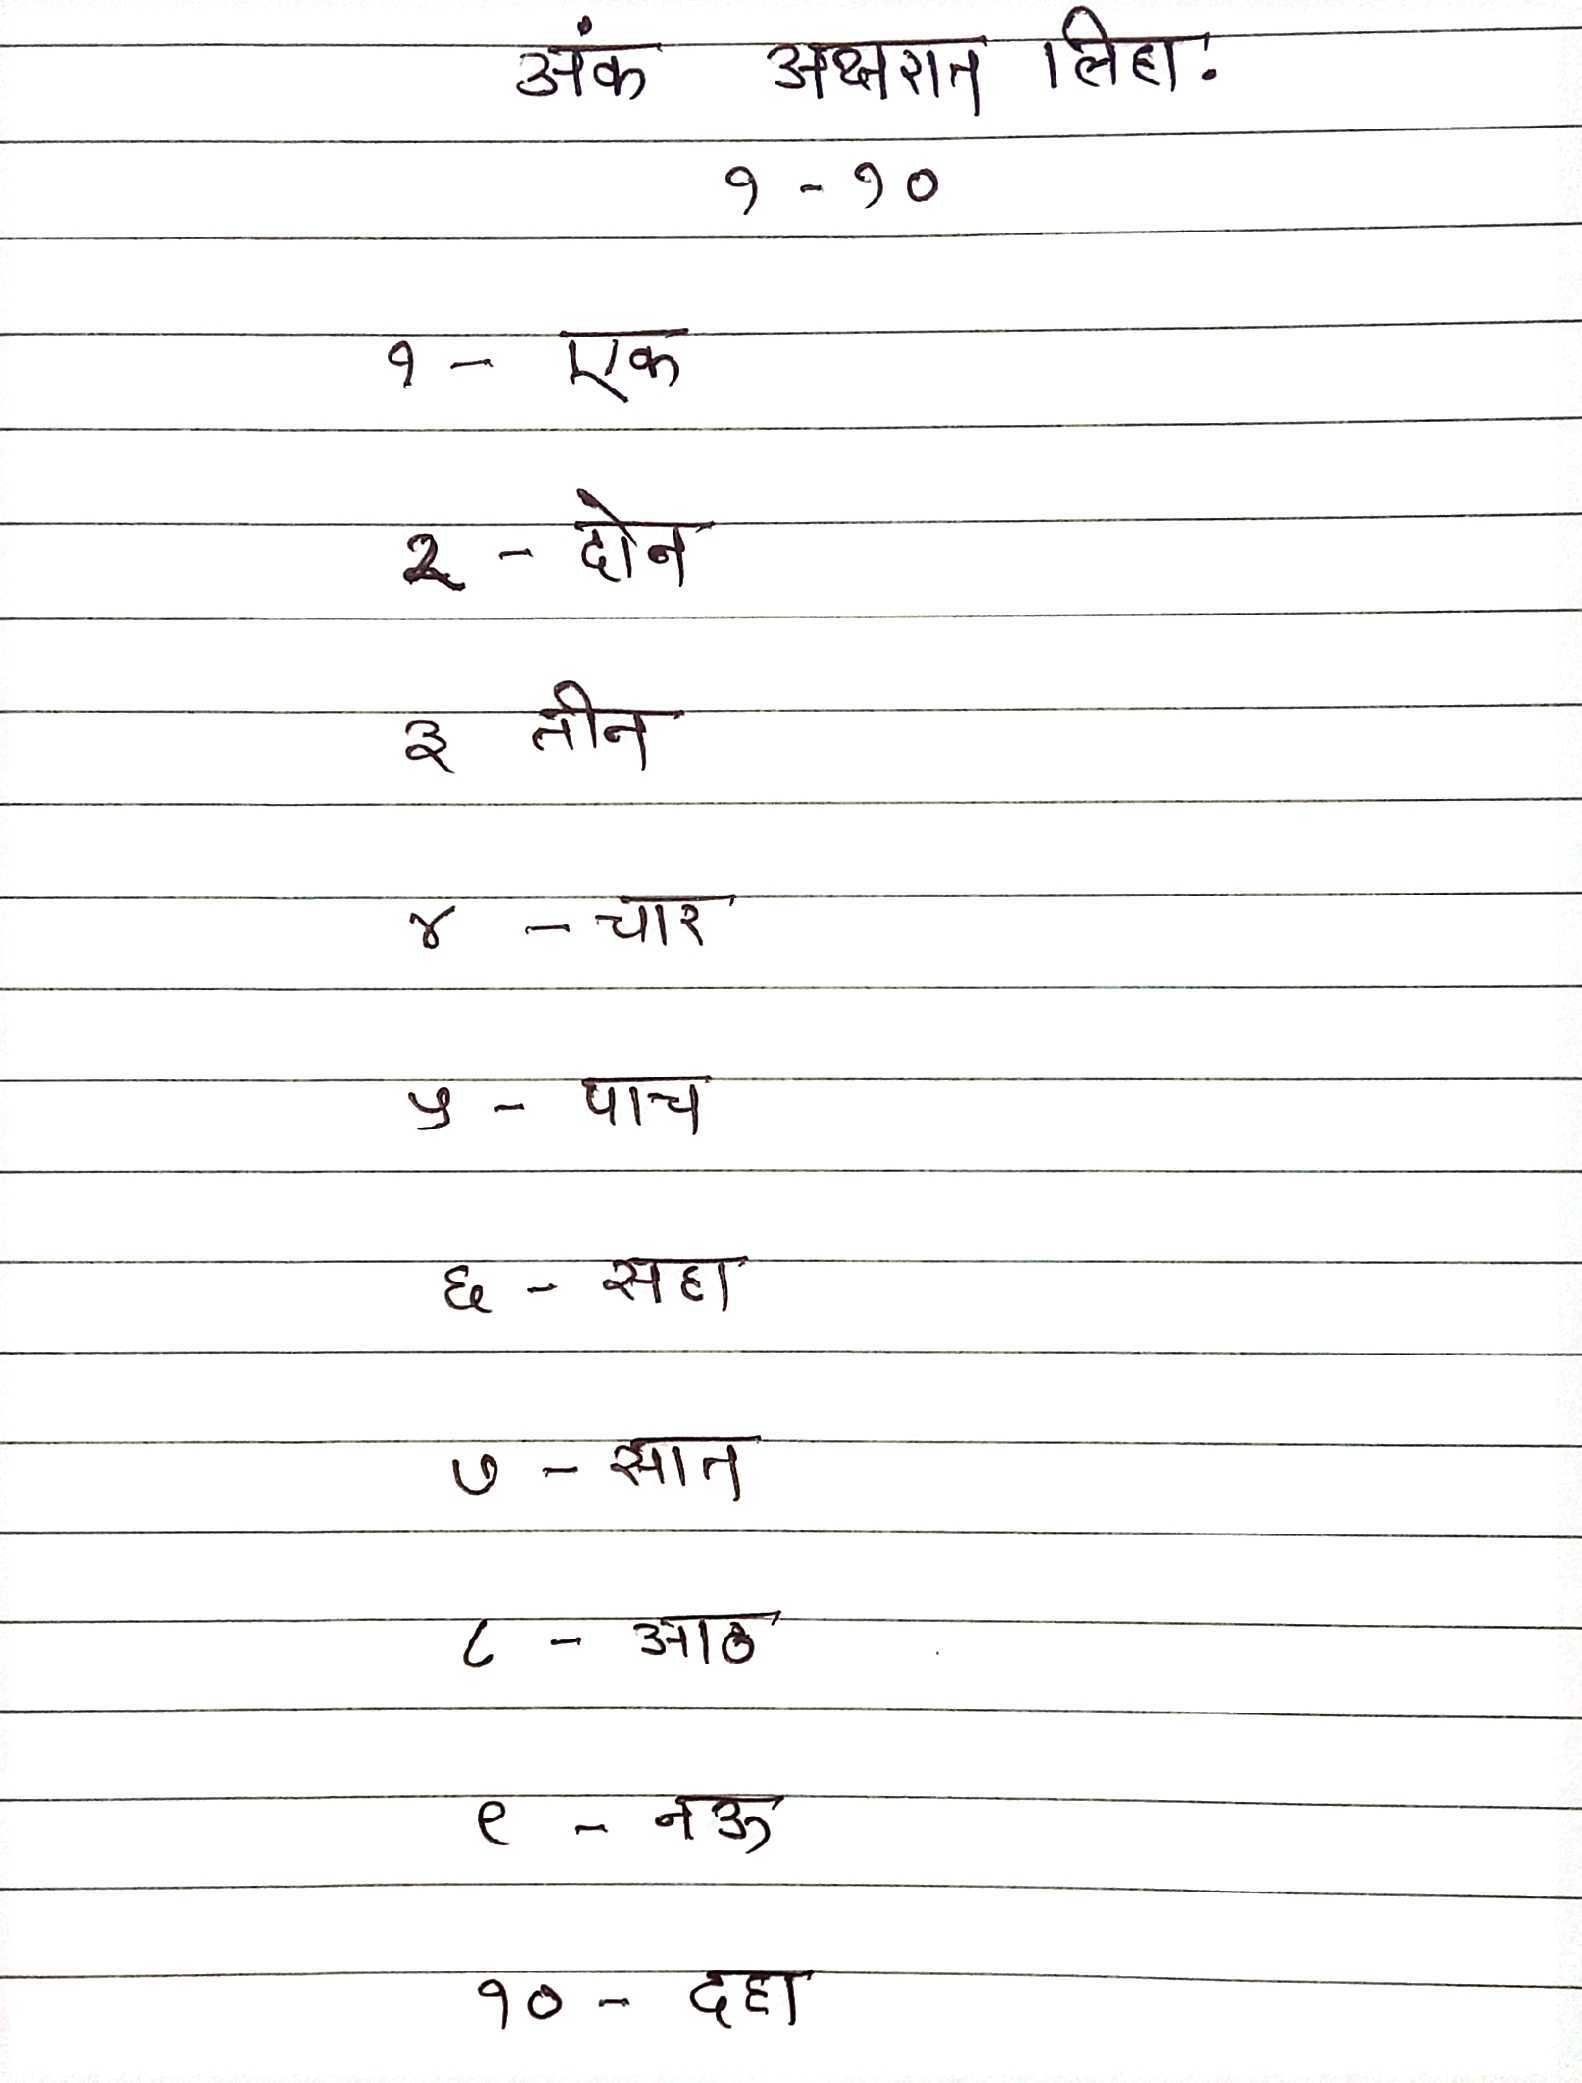 अंक अक्षरात लिहा.
१ - १०
१ - एक
२ - दोन
३ तीन
४ - चार
५ - पाच
६ - सहा
७ - सात
८ - आठ
९ - नऊ
१० - दहा